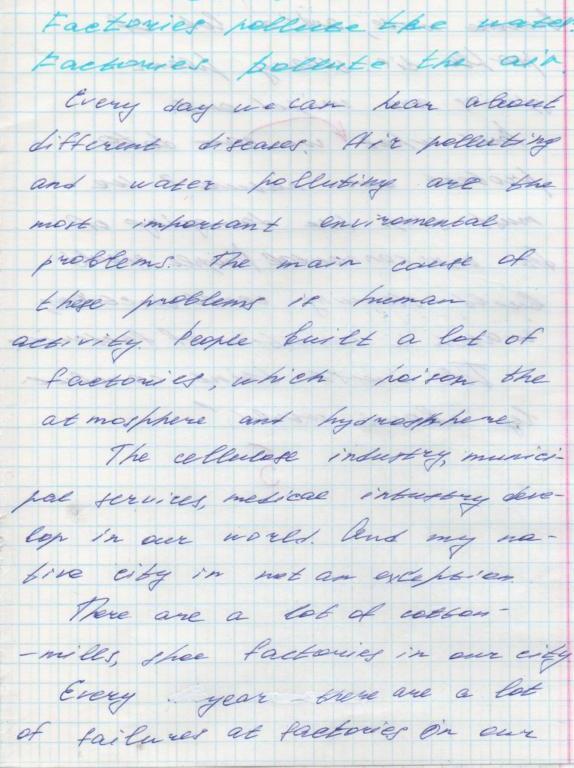 Factories pollute the water.
Factories pollute the air.
Every day we can hear about
different diseases. Air polluting
and water polluting are the
most important enviromental
problems. The main cause of
these problems is human
activity. People built a lot of
factories, which poison the
atmosphere and hydrosphere.
The cellulose industry, munici-
pal services, medical industry deve-
lop in our world. And my na-
tive city in not an exception.
There are a lot of cotton-
-mills, shoe factories in our city
Every year there are a lot
of failures at factories in our